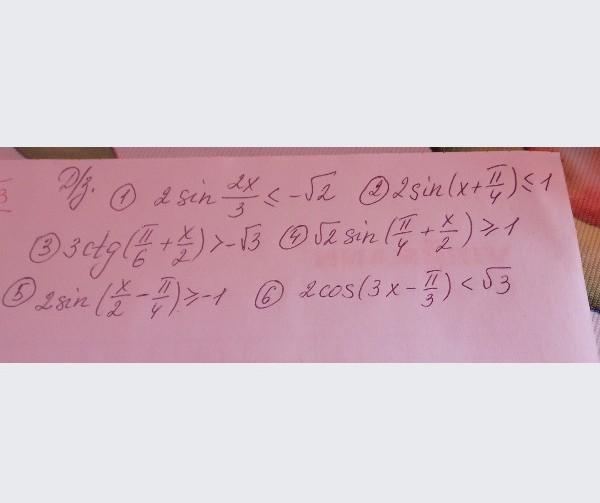 Д/з. ① 2 sin 2x/3 ≤ -√2 ② 2 sin(x + π/4) ≤ 1
③ 3 ctg(π/6 + x/2) > -√3 ④ √2 sin(π/4 + x/2) ≥ 1
⑤ 2 sin(x/2 - π/4) ≥ -1 ⑥ 2 cos(3x - π/3) < √3